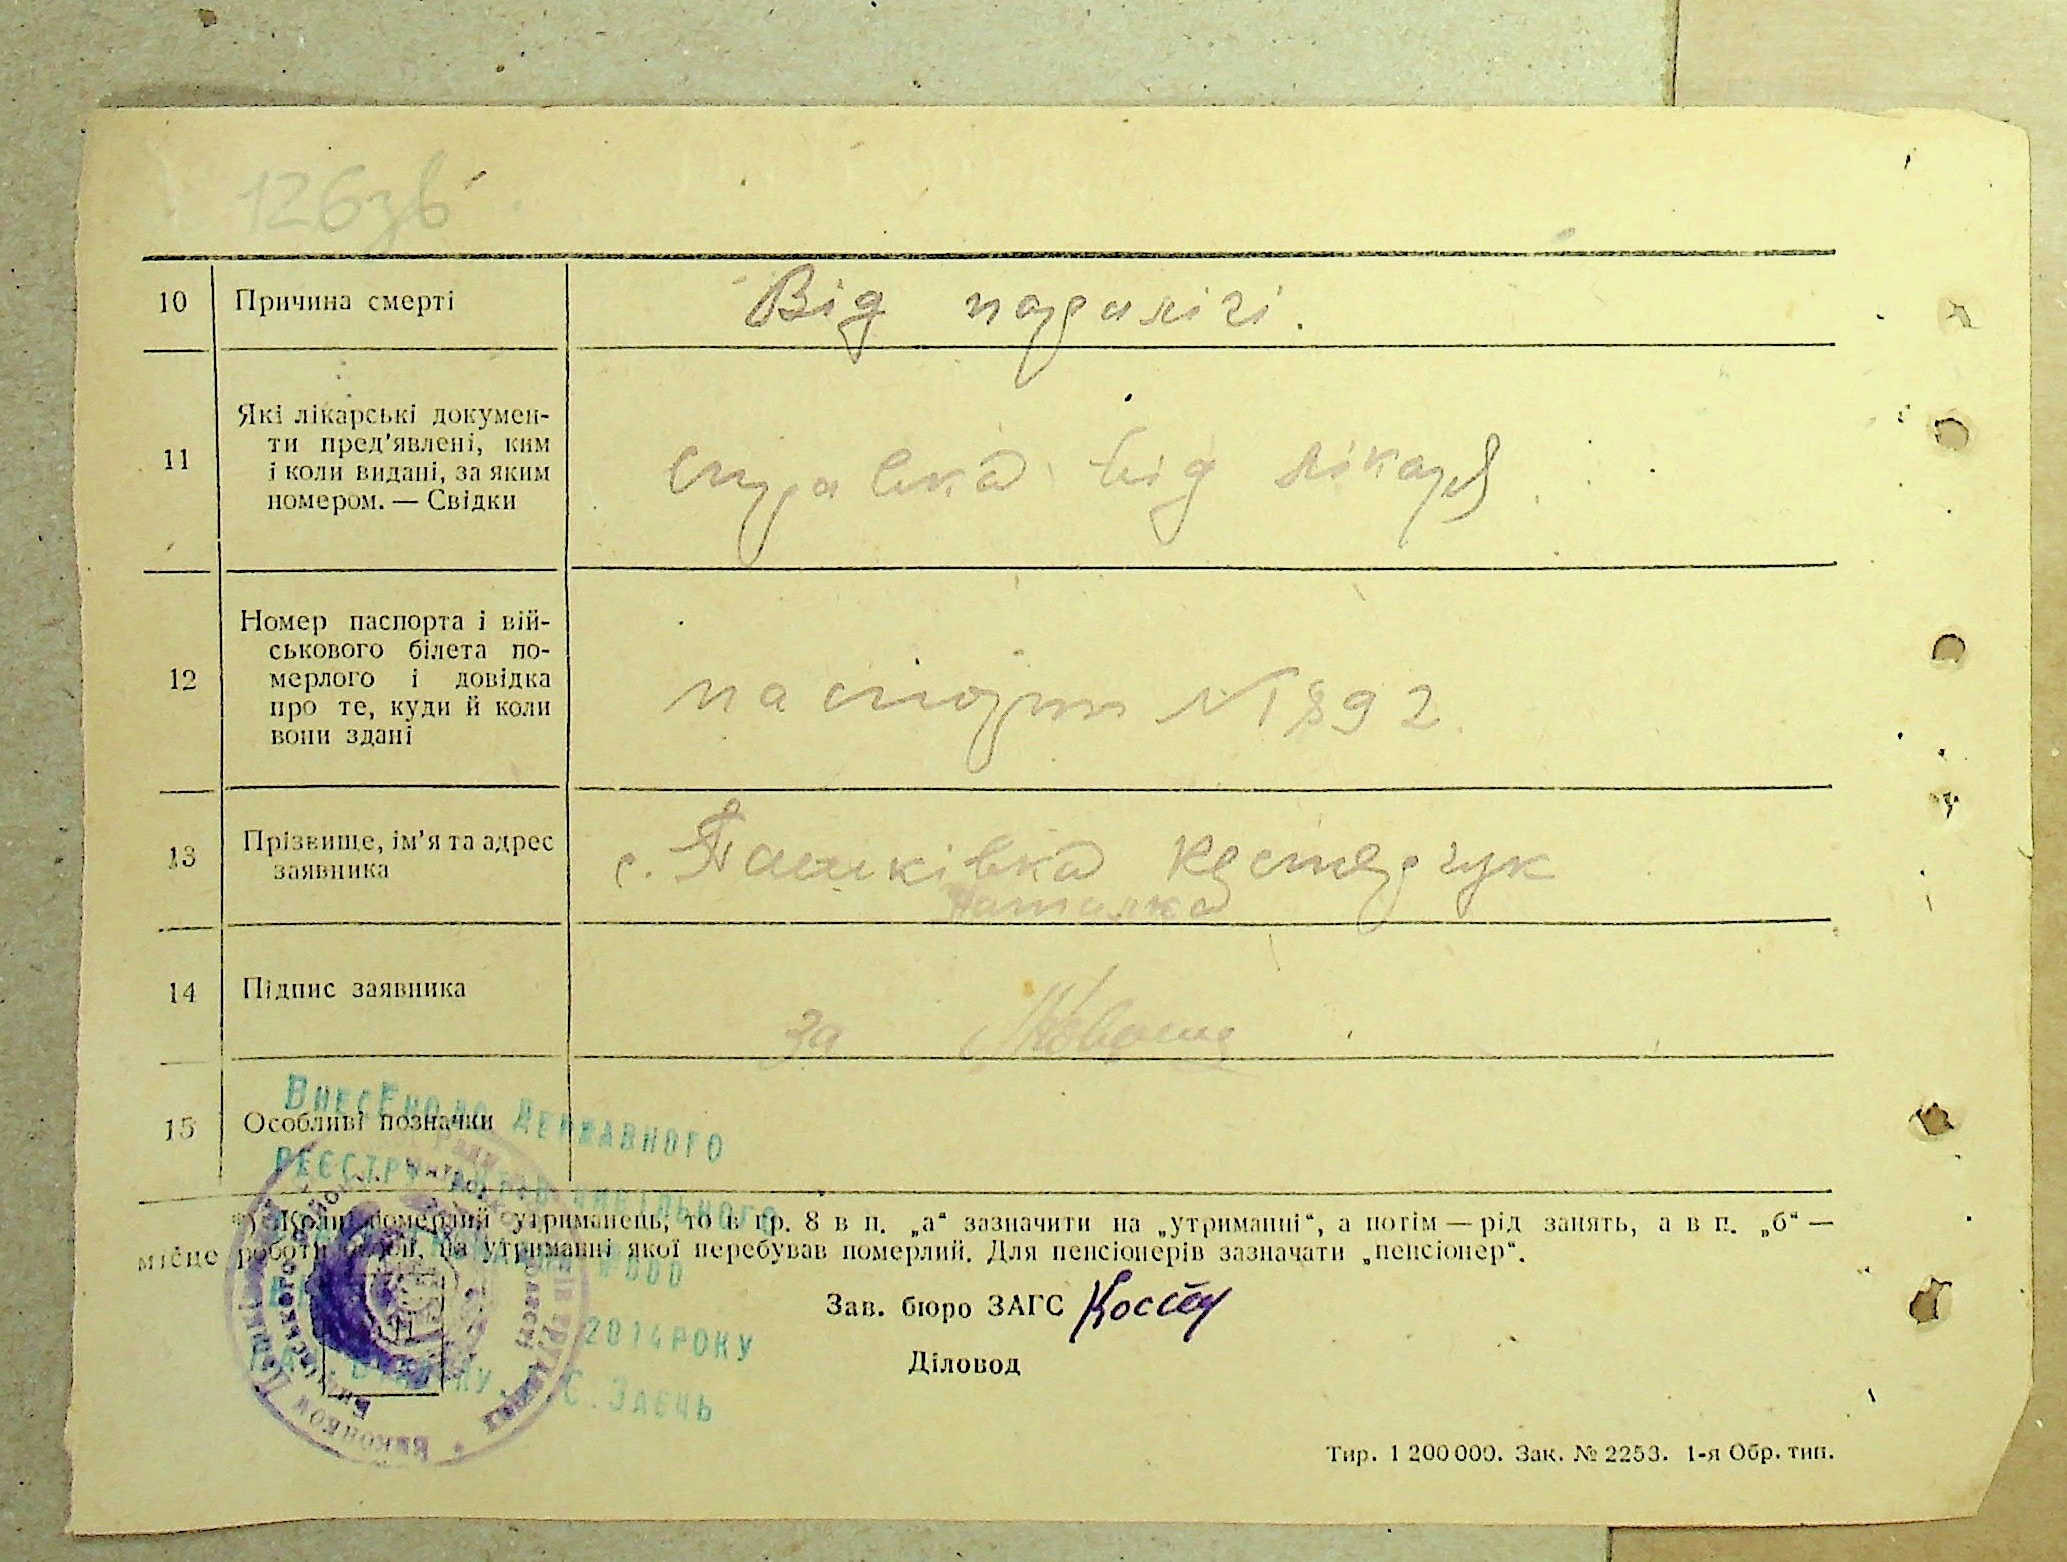 126зв
10 Причина смерті Від паралічі.
11 Які лікарські докумен-
ти пред'явлені, ким
і коли видані, за яким
номером. — Свідки
справка від лікаря
12 Номер паспорта і вій-
ськового білета по-
мерлого і довідка
про те, куди й коли
вони здані
паспорт № 892
13 Прізвище, ім'я та адрес
заявника
с. Пашківка
Наталка
14 Підпис заявника
за
15 Особливі позначки
Внесено до Державного
реєстру
2014 року
С. Заєць
*) Коли померлий утриманець, то в гр. 8 в п. „а“ зазначити на „утриманні“, а потім — рід занять, а в п. „б“ —
місце роботи на утриманні якої перебував померлий. Для пенсіонерів зазначати „пенсіонер“.
Зав. бюро ЗАГС
Діловод
Тир. 1 200 000. Зак. № 2253. 1-я Обр. тип.